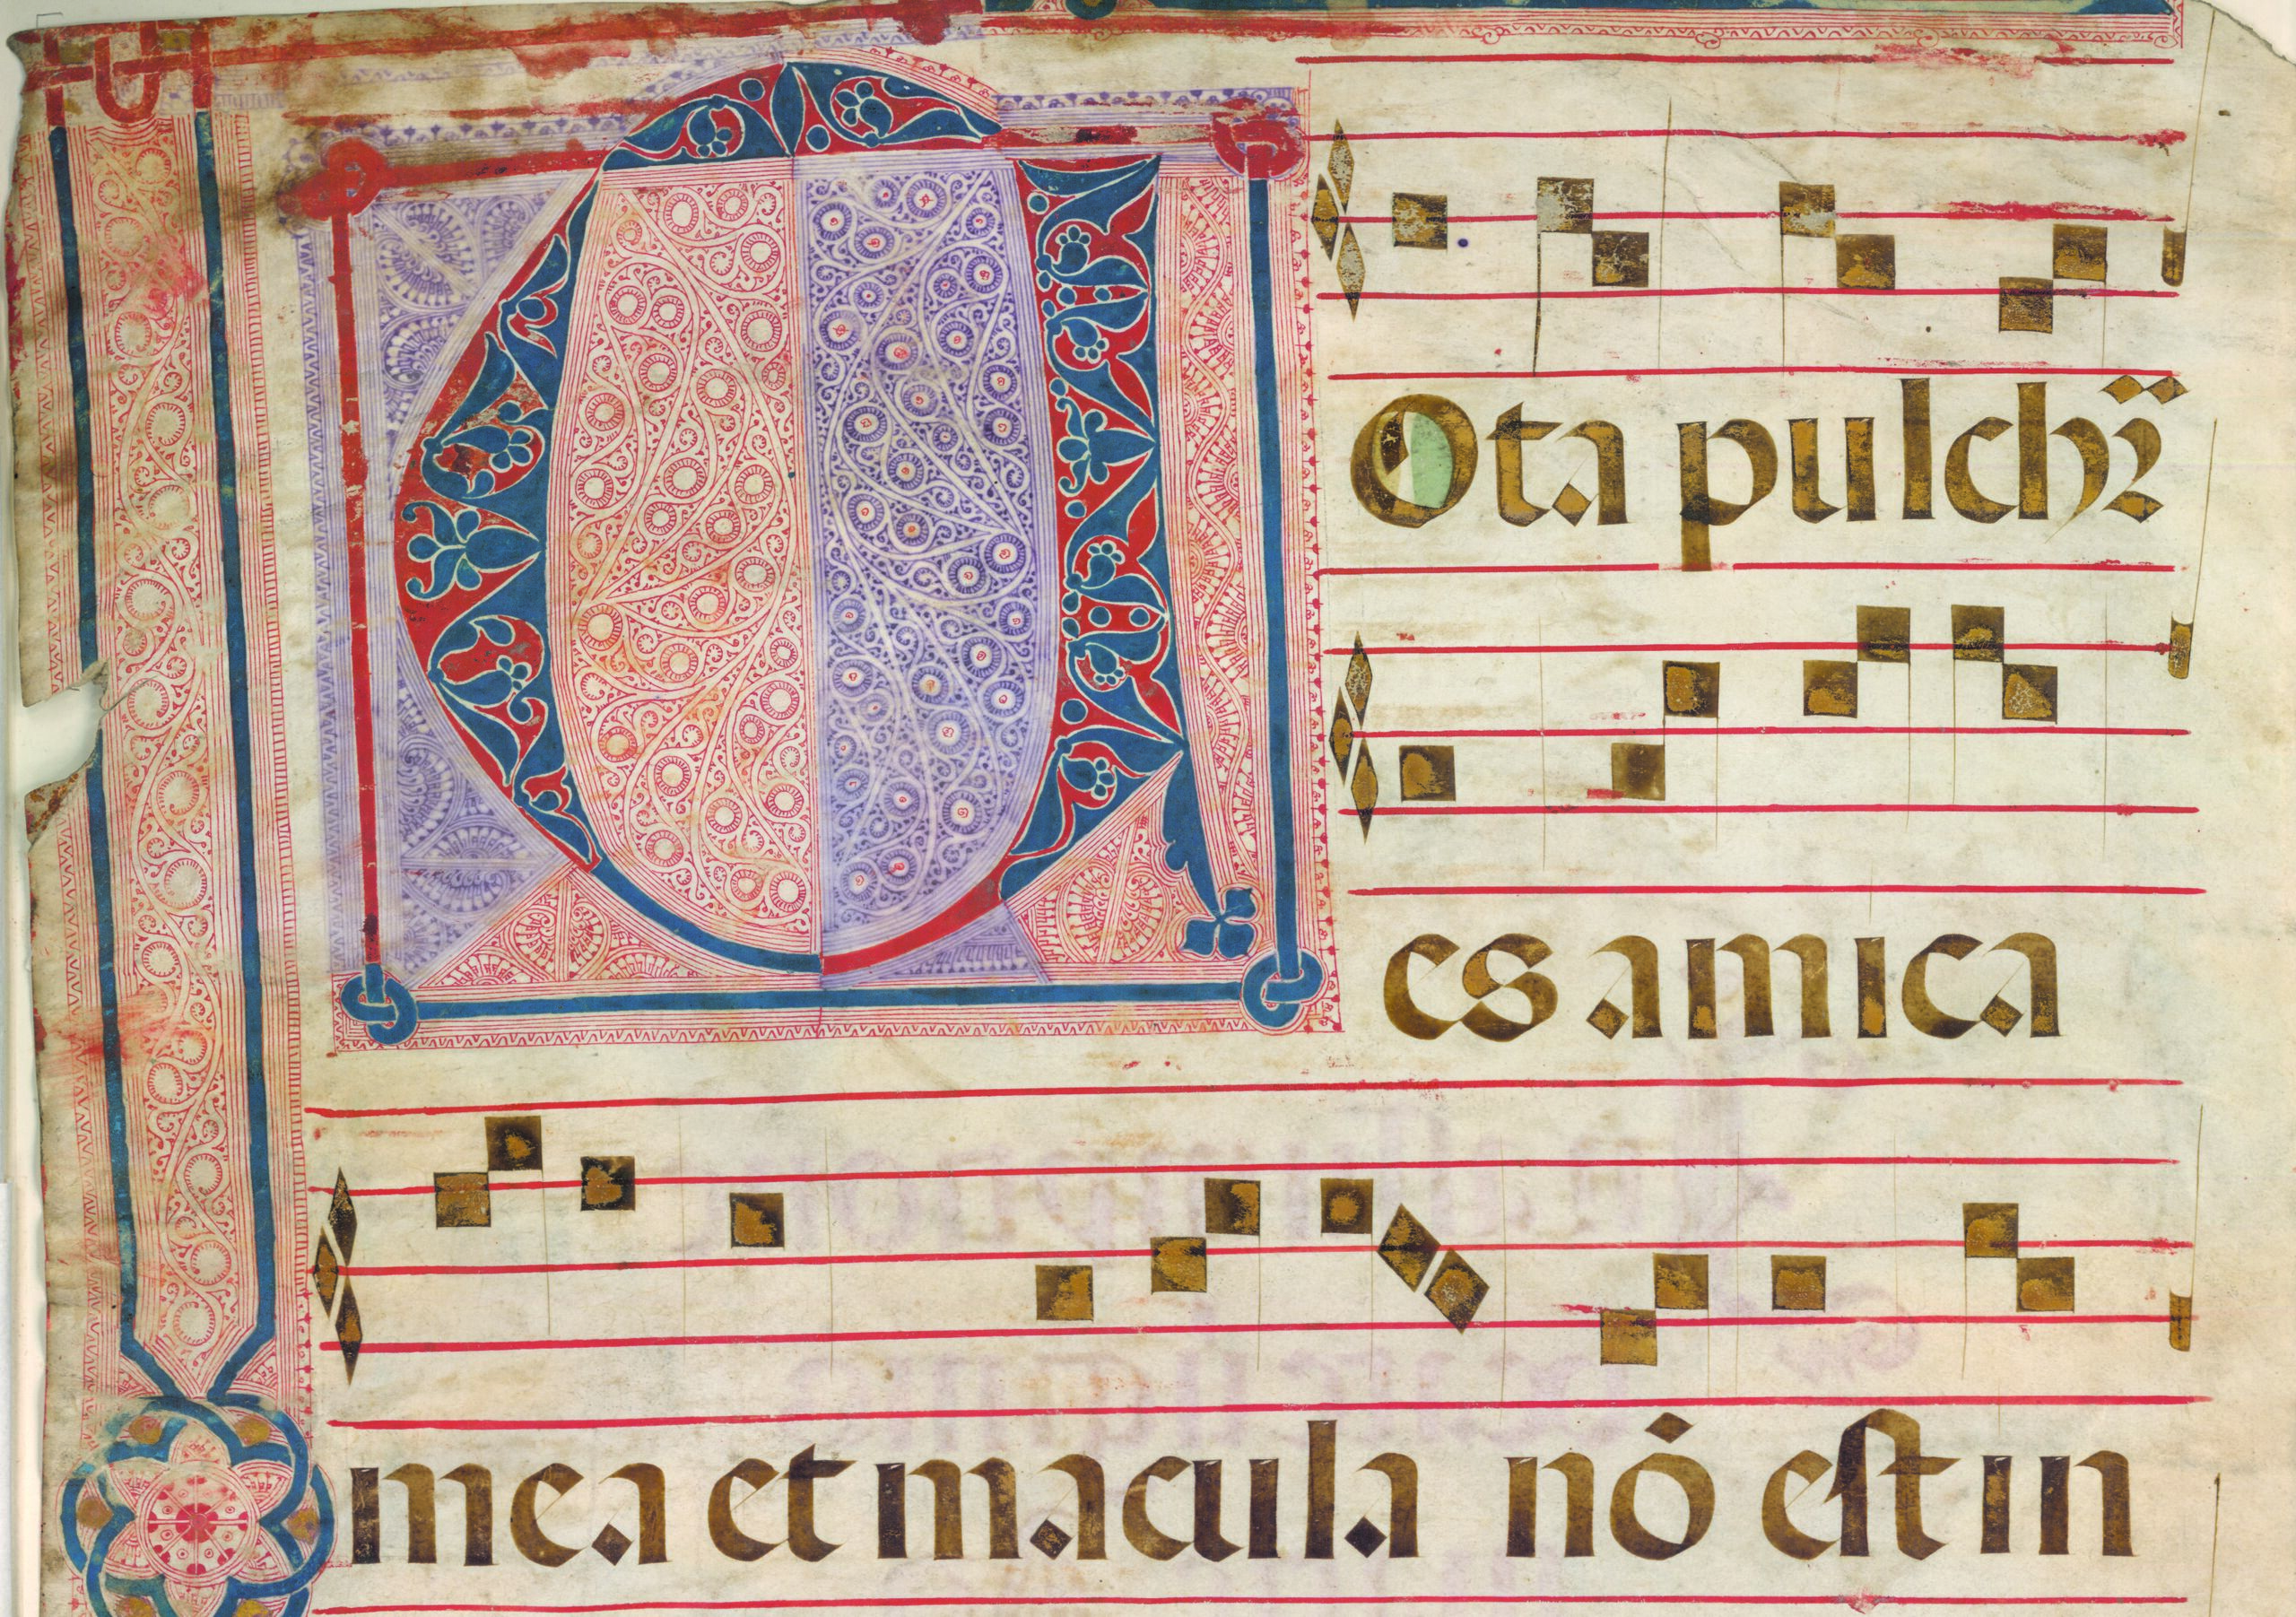 TOta pulchr̄
es amica
mea et macula nō est in